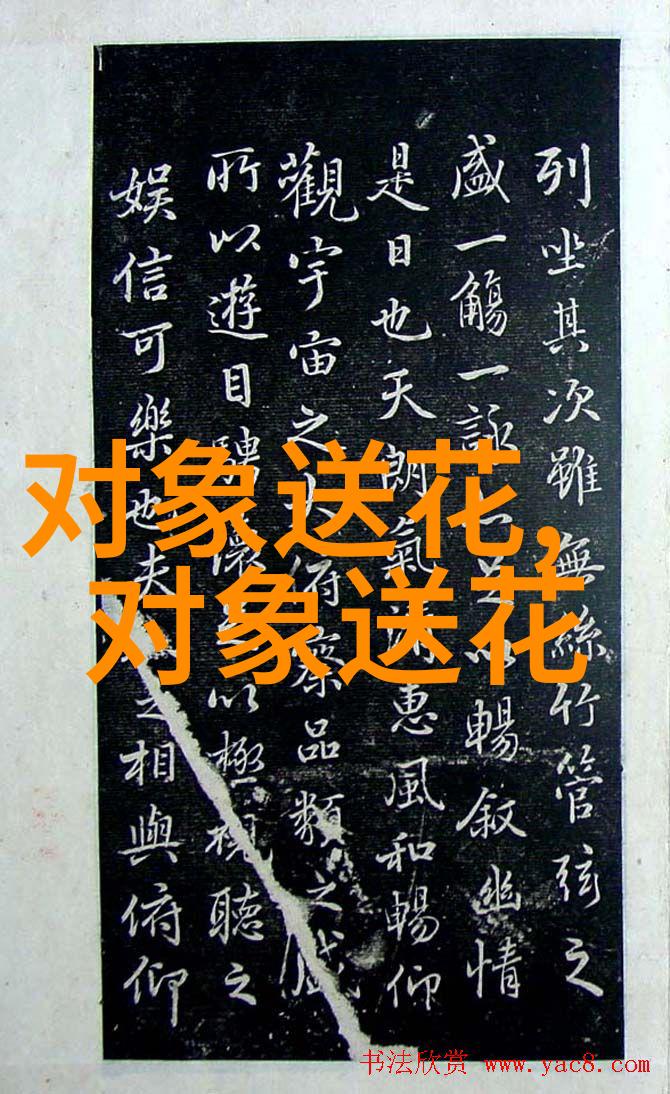 列坐其次雖無絲竹管弦之
盛一觴一詠足以暢敘幽情
是日也天朗氣惠風和暢仰
觀宇宙之俯察品類之盛
所以遊目騁懷以極視聽之
娛信可樂也夫之相與俯仰
对象送花,
对象送花
书法欣赏 www.yac8.com